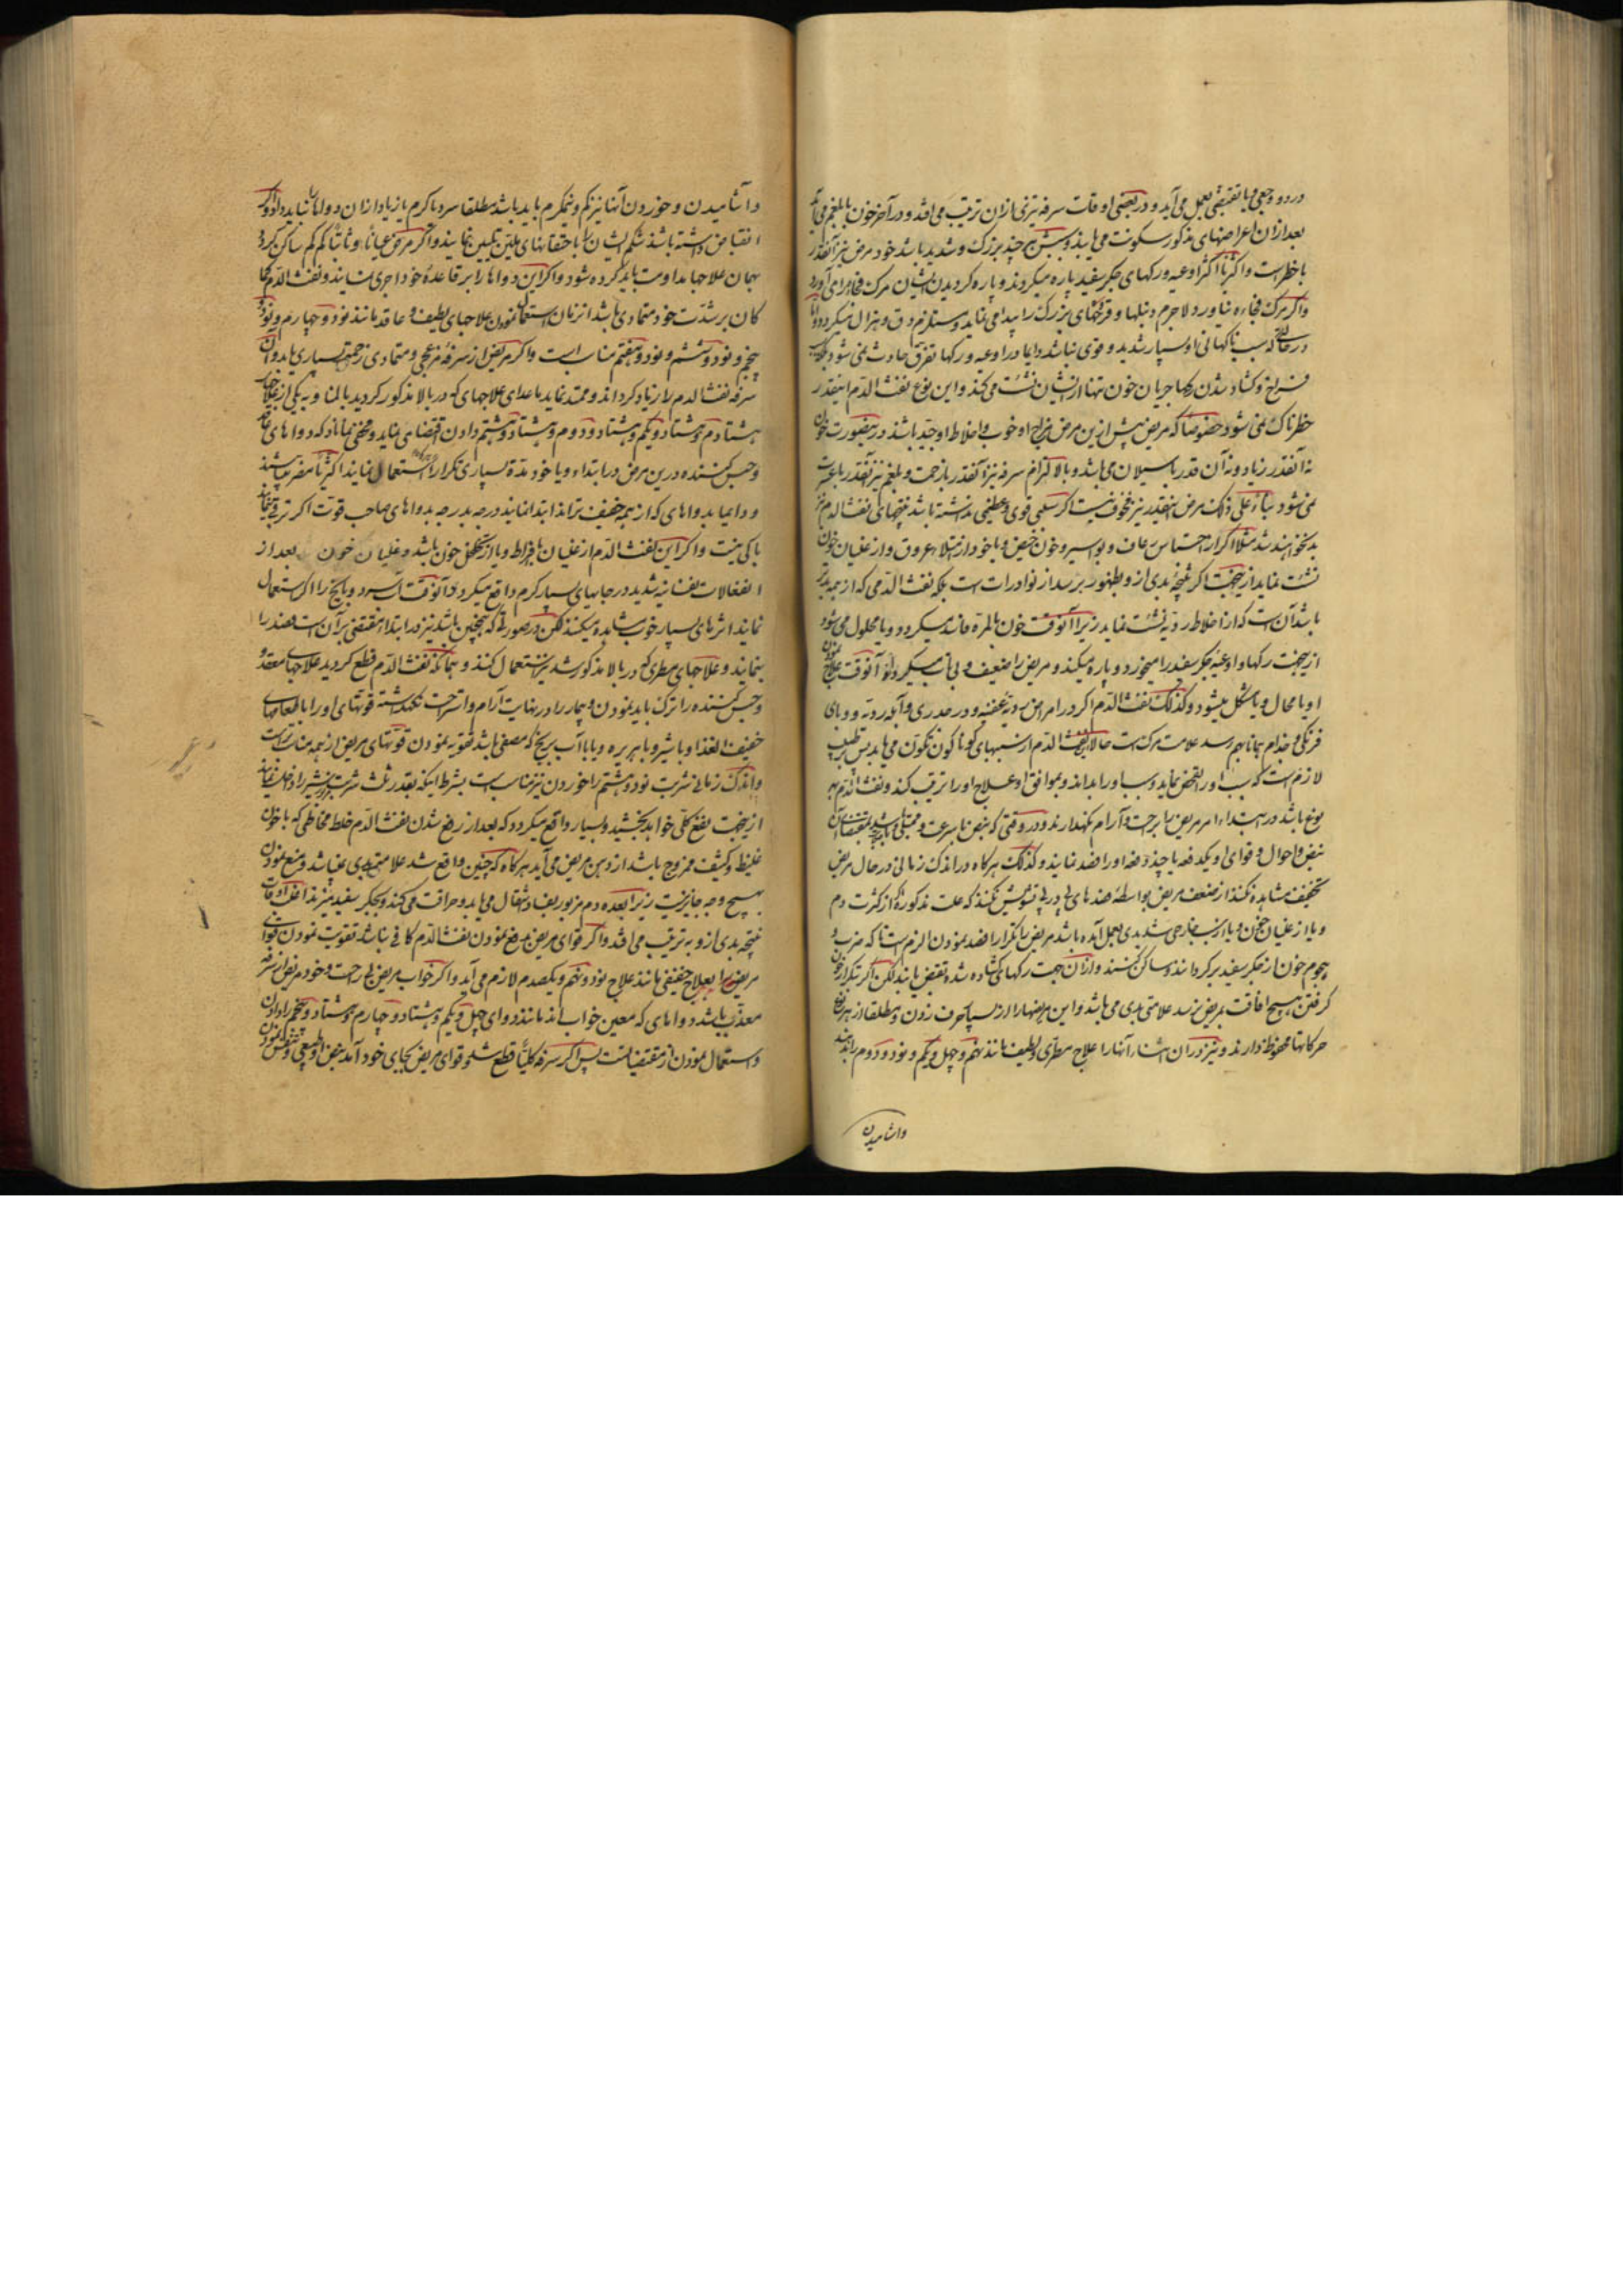 درد و وجعی و یا تضیقی بعمل می آید و در بعضی اوقات سرفه نیزی ازان ترتیب می افتد و در آخر خون با بلغم می آید
بعد ازان اعراضهای مذکور سکونت می یابند و سبش هر چند بزرک و شدید باشد خود مرض نیز آنقدر
با خطر است و اکثریا اکثر اوعیه و رکهای جکر سفید پاره میکردند و پاره کردیدن ایشان مرک فجاءه را می آورد
و اکر مرک فجاءه نیاورد لاجرم دنبلها و قرحهای بزرک را پیدا می نماید و مستلزم دق و هزال میکردد و اما
در حالتی که سبب ناکهانی او بسیار شدید و قوی نباشد دایما در اوعیه و رکها تفرق حادث نمی شود بلکه بسبب
فراخ و کشاد شدن رکها جریان خون تنها از ایشان نشئت می کند و این نوع نفث الدم اینقدر
خطرناک نمی شود خصوصا که مریض پیش ازین مرض مزاج او خوب و اخلاط او جید باشد در ینصورت خون
نه آنقدر زیاد و نه آن قدر با سیلان می باشد و بالالتزام سرفه نیز آنقدر با زحمت و بلغم نیز آنقدر با عسرت
نمی شود بناء علی ذلک مرض اینقدر نیز مخوف نیست اکر سببی قوی و عظیمی نداشته باشد نتیجهای نفث الدم نیز
بد نخواهند شد مثلا اکر از احتباس رعاف و بواسیر و خون حیض و یا خود از امتلاء عروق و از غلیان خون
نشئت نماید ازینجهت اکر نتیجهٔ بدی ازو بظهور برسد از نوادرات است بلکه نفث الدمی که از همه بدتر
باشد آن است که از اخلاط ردیه نشئت نماید زیرا آنوقت خون بالمره فاسد میکردد و یا محلول می شود
ازینجهت رکها و اوعیهٔ جکر سفید را میخورد و پاره میکند و مریض را ضعیف و بی تاب میکرداند آنوقت علاج نمودن
او یا محال و یا مشکل میشود و کذلک نفث الدم اکر در امراض ردیهٔ عفنیه و در جدری و آبله ردیه و وبای
فرنکی و جذام بمانا بهم رسد علامت مرک است حالا نفث الدم از سببهای کوناکون تکون می یابد پس بر طبیب
لازم است که سبب او را تفحص نماید و سبب او را بداند و بموافق او علاج او را ترتیب کند و نفث الدم بهر
نوع باشد در ابتداء امر مریض را براحت و آرام نکهدارند و در وقتی که نبض با سرعت و ممتلی باشد بمقتضای
نبض و احوال و قوای او یکدفعه یا چند دفعه او را فصد نمایند و کذلک هرکاه در اندک زمانی در حال مریض
تخفیف مشاهده نکنند از ضعف مریض بواسطهٔ فصدهای پی در پی تشویش نکنند که علت مذکوره اکر از کثرت دم
و یا از غلیان خون و یا از سبب خارجی شدیدی بعمل آمده باشد مریض را تکرارا فصد نمودن الزم است تا که ضرب و
هجوم خون از جکر سفید برکردانند و ساکن کنند و ازان جهت رکهای کشاده شده تقبض یابند لکن اکر تکرار خون
کرفتن هیچ افاقت بمریض نرسد علامتی بدی می باشد و این مریضها را از بسیا حرف زدن و مطلقا از هر نوع
حرکاتها محفوظ دارند و نیز دران اثنا آنها را علاج مطری و لطیف مانند نهم و چهل و یکم و نود و دوم را بدهند
واشامیدن
و آشامیدن و خوردن آنها نیز نکم و نیمکرم باید باشد مطلقا سرد یا کرم یا زیاد ازان دواها نباید داد و اکر
انقباض داشته باشند شکم ایشان را با حقنهای ملین تلیین نمایند و اکر مرض عیانا و ثابتا کم کم ساکن کردد
بهمان علاجها مداومت باید کرده شود و اکر این دواها را بر قاعدهٔ خود اجری نمایند و نفث الدم کما
کان بر شدت خود متمادی باشد انزمان استعمال نمودن علاجهای لطیف و عاقد مانند نود و چهارم و نود و
پنجم و نود و ششم و نود و هفتم مناسب است و اکر مریض از سرفه مزعجی و متمادی زحمت بسیاری یابد و ان
سرفه نفث الدم را زیاد کرداند و ممتد نماید ما عدای علاجهای که در بالا مذکور کردید بالمناوبه یکی از علاج
هشتادم و هشتاد و یکم و هشتاد و دوم و هشتاد و هشتم دادن اقتضا می نماید و مخفی نماناد که دواهای عاقد
و حبس کننده درین مرض در ابتداء و یا خود مدة بسیاری تکرارا استعمال نمایند اکثریا مضر میباشند
و دایما بدواهای که از همه خفیف تراند ابتدا نمایند درجه بدرجه بدواهای صاحب قوت اکر ترقی نمایند
باکی نیست و اکر این نفث الدم از غلیان بافراط و یا از تخلخل خون باشد و غلیان خون بعد از
انفعالات نفسانیه شدید در جایهای بسیار کرم واقع میکردد آنوقت آب سرد و یا یخ را اکر استعمال
نمایند اثرهای بسیار خوب مشاهده میکنند لکن در صورتی که همچنین باشد نیز در ابتدا مقتضی بر آن است فصد را
بنمایند و علاجهای مطری که در بالا مذکور شد نیز استعمال کنند و همانکه نفث الدم قطع کردید علاجهای معقد و
و حبس کننده را ترک باید نمودن و بیمار را در نهایت آرام و استراحت نکهداشته قوتهای او را با طعامهای
خفیف الغذا و با شیر و با هریره و یا با آب برنج که مصفی باشد تقویه نمودن قوتهای مریض از همه مناسبتر است
و اندک زمانی شربت نود و هشتم را خوردن نیز مناسب است بشرط اینکه بقدر ثلث شربت شیر را داخل نمایند
ازینجهت نفع کلی خواهد بخشید و بسیار واقع میکردد که بعد از رفع شدن نفث الدم خلط مخاطی که با خون
غلیظ و کثیف ممزوج باشد از دهن مریض می آید هرکاه که چنین واقع شد علامتی بدی نمیباشد و منع نمودن
بهیچ وجه جایز نیست زیرا بعده دم مزبور بفساد انتقال می یابد و حراقت می کند و بجکر سفید میزند اغلب اوقات
نتیجه بدی ازو به ترتیب می افتد و اکر قوای مریض برفع نمودن نفث الدم کافی نباشد تقویت نمودن قوای
مریض را بعلاج خفیفی مانند علاج نود و نهم و یکصدم لازم می آید و اکر خواب مریض بی راحت و خود مریض از سرفه
معذب باشد دواهای که معین خواب اند مانند دوای چهل و یکم و هشتاد و چهارم و هشتاد و پنجم را دادن
و استعمال نمودن از مقتضیات است پس اکر سرفه کلیا قطع شد و قوای مریض بجای خود آمد نبض او طبیعی و تنفس نمودن